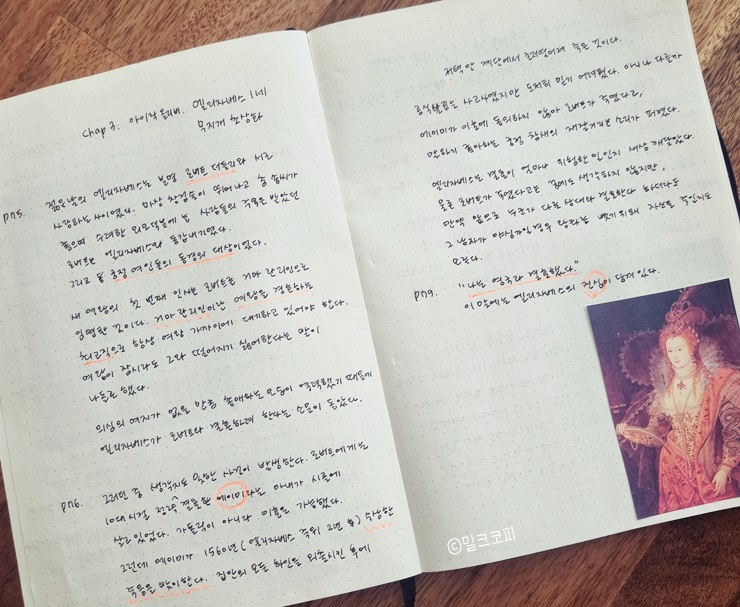 Chap 3. 아이작 올리버, 엘리자베스 1세
무지개 초상화
p175.
젊은날의 엘리자베스는 분명 로버트 더들리와 서로
사랑하는 사이였다. 마상 창검술이 뛰어나고 춤 솜씨가
좋으며 수려한 외모덕분에 늘 사람들의 주목을 받았던
로버트는 엘리자베스와 동갑내기였다.
그리고 통 궁정 여인들의 동경의 대상이었다.
새 여왕의 첫 번째 인사는 로버트를 거마 관리인으로
임명한 것이다. 거마 관리인이란 여왕을 경호하는
최고직으로 항상 여왕 가까이에 대기하고 있어야 한다.
여왕이 잠시라도 그와 떨어지기 싫어한다는 말이
나돌곤 했다.
의심의 여지가 없을 만큼 총애하는 모습이 역력했기 때문에
엘리자베스가 로버트와 결혼하려 한다는 소문이 돌았다.
p176.
그러던 중 생각지도 못한 사건이 발생한다. 로버트에게는
10대 시절 결혼한 에이미라는 아내가 시골에
살고 있었다. 가톨릭이 아니라 이혼은 가능했다.
그런데 에이미가 1560년(엘리자베스 즉위 2년 후) 수상한
죽음을 맞이한다. 집안의 모든 하인을 외출시킨 후에
저택 안 계단에서 굴러떨어져 죽은 것이다.
공식발표는 사고사였지만 도저히 믿기 어려웠다. 아니나 다를까
에이미가 이혼에 동의하지 않아 로버트가 죽였다고,
말하기 좋아하는 궁정 참새의 재잘거리는 소리가 퍼졌다.
엘리자베스는 결혼이 얼마나 위험한 일인지 새삼 깨달았다.
물론 로버트가 죽였다고는 꿈에도 생각하지 않지만,
만약 앞으로 누군가 다른 상대와 결혼한다 하더라도
그 남자가 야심가인 경우 왕관을 뺏기 위해 자신을 죽일지도
모른다.
p179.
"나는 영국과 결혼했다."
이 말에는 엘리자베스의 진심이 담겨 있다.
©밀크코피